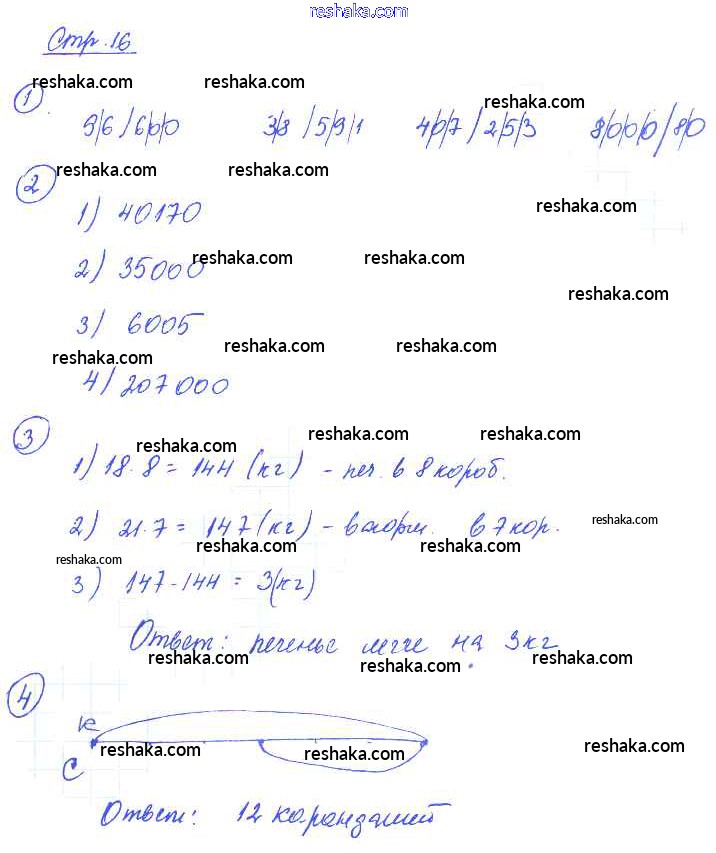 reshaka.com
Стр. 16
reshaka.com reshaka.com
1 9/6/6/0/0 3/8/5/9/1 4/0/7/2/5/3 8/0/0/0/8/0
reshaka.com
reshaka.com reshaka.com
2
1) 40170
reshaka.com
2) 35000
reshaka.com reshaka.com
reshaka.com
3) 6005
reshaka.com reshaka.com
reshaka.com
4) 207000
3
reshaka.com reshaka.com reshaka.com
1) 18·8 = 144 (кг) - печ. в 8 короб.
2) 21·7 = 147 (кг) - в 7 кор.
reshaka.com
reshaka.com reshaka.com
reshaka.com
3) 147-144 = 3(кг)
Ответ: печенье легче на 3 кг.
reshaka.com reshaka.com
4
К
reshaka.com reshaka.com reshaka.com
С
Ответ: 12 карандашей